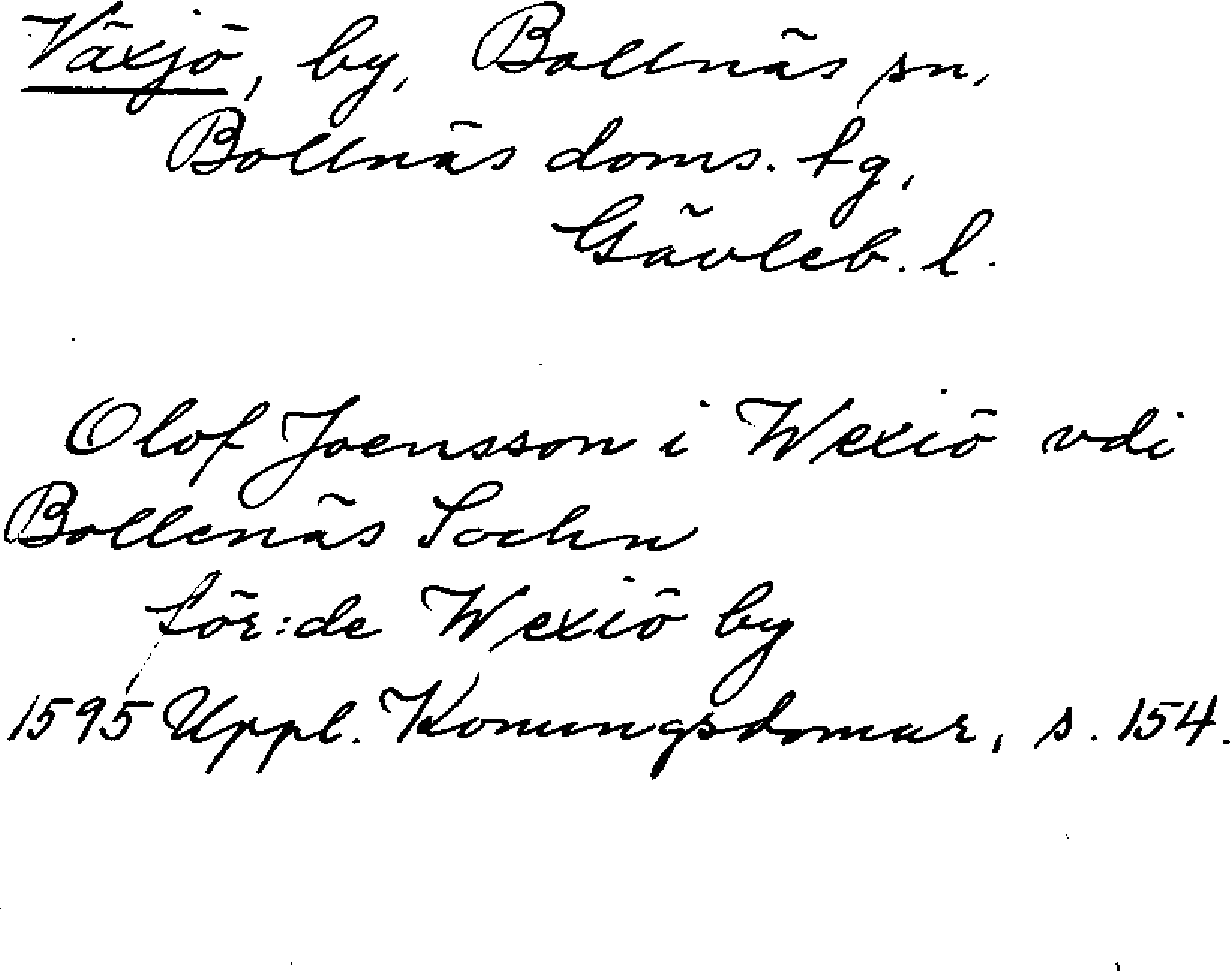 Växjö, by, Bollnäs sn,
Bollnäs doms. tg,
Gävleb. l.
Olof Joensson i Wexiö vdi
Bollenäs Sochn
för:de Wexiö by
1595 Uppl. Konungsdomar, s. 154.